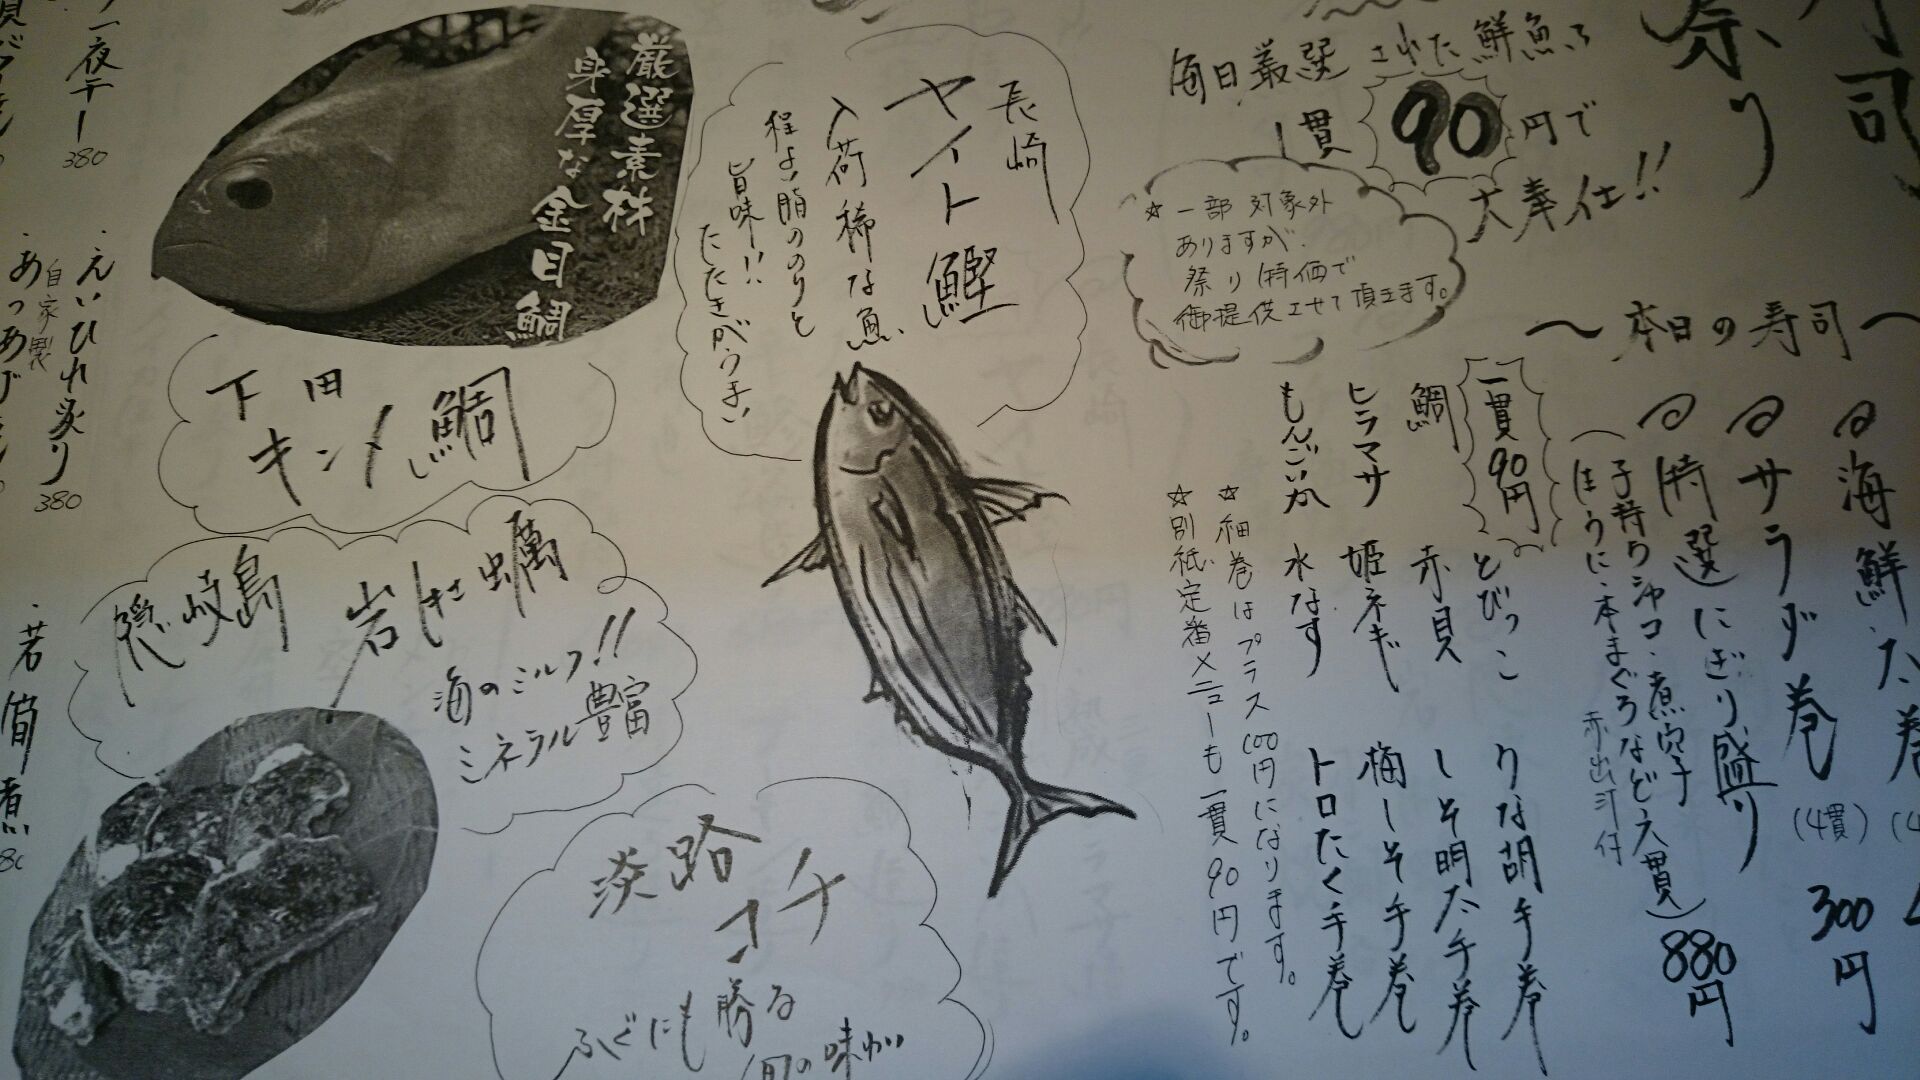 寿司
祭り
毎日厳選された鮮魚
1貫90円で
大奉仕!!
☆一部対象外
ありますが、
祭り特価で
御提供させて頂きます。
〜本日の寿司〜
海鮮太巻
サラダ巻(4貫)300円
特選にぎり盛り 880円
(子持ちシャコ・煮穴子
生うに・本まぐろなど六貫)
赤出汁付
一貫90円
とびっこ
りな胡手巻
鯛
赤貝
しそ明太手巻
ヒラマサ
姫ネギ
梅しそ手巻
もんごいか
水なす
トロたく手巻
☆細巻はプラス100円になります。
☆別紙定番メニューも一貫90円です。
長崎
ヤイト鰹
入荷稀な魚
程よい脂ののりと
旨味!!
たたきがうまい
厳選素株
身厚な金目鯛
下田
キンメ鯛
隠岐島
岩ガキ蠣
海のミルク!!
ミネラル豊富
淡路
コチ
ふぐにも勝る
旬の味わい
一夜干し
380
・えいひれ炙り
380
自家製
・若筍煮